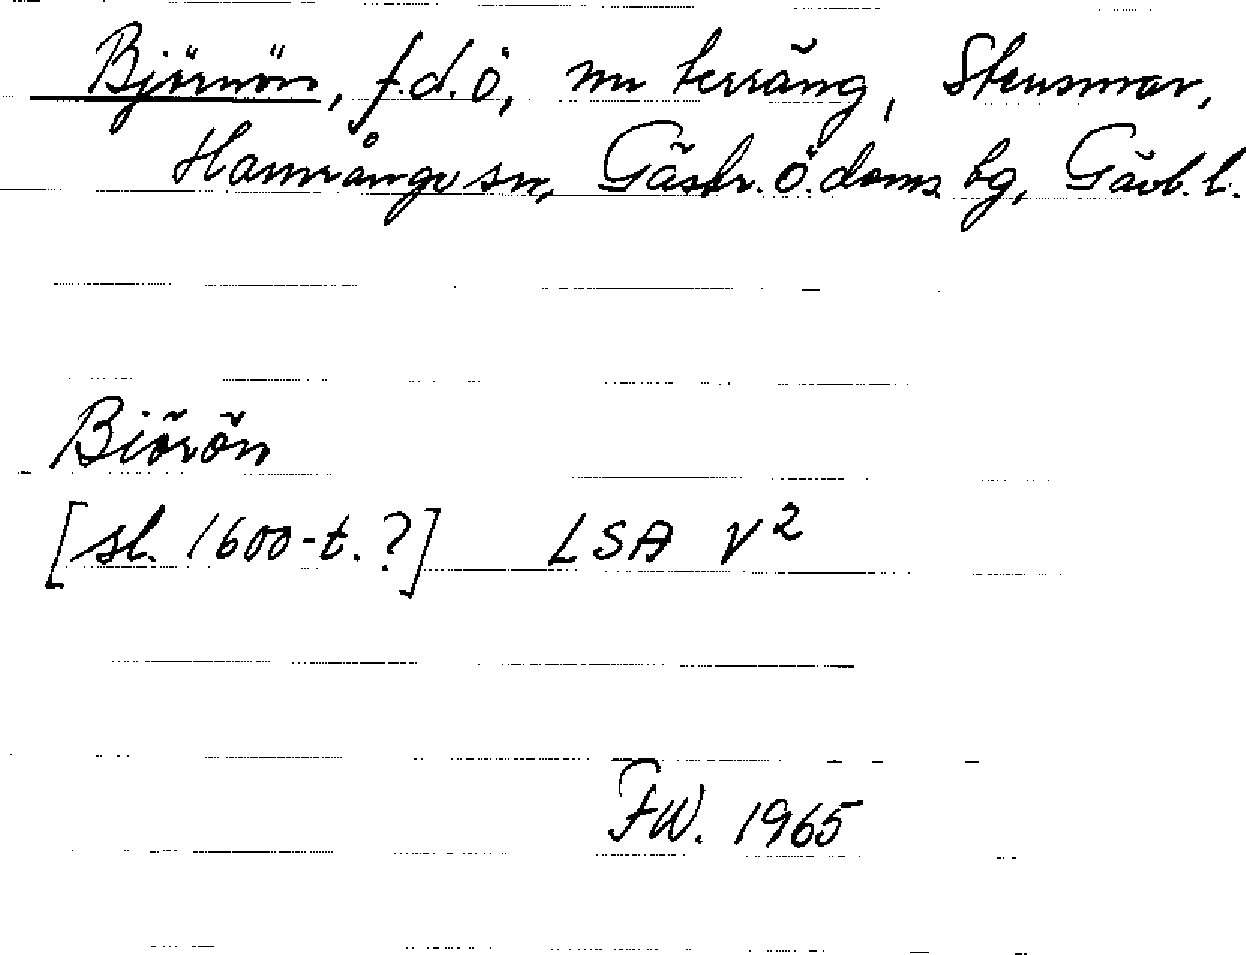 Björnön, f.d. ö, nu terräng, Stensmar,
Hamrånge sn, Gästr. Ö. doms bg, Gävl. l.
Biörön
[sl. 1600-t.?] LSA V²
FW. 1965